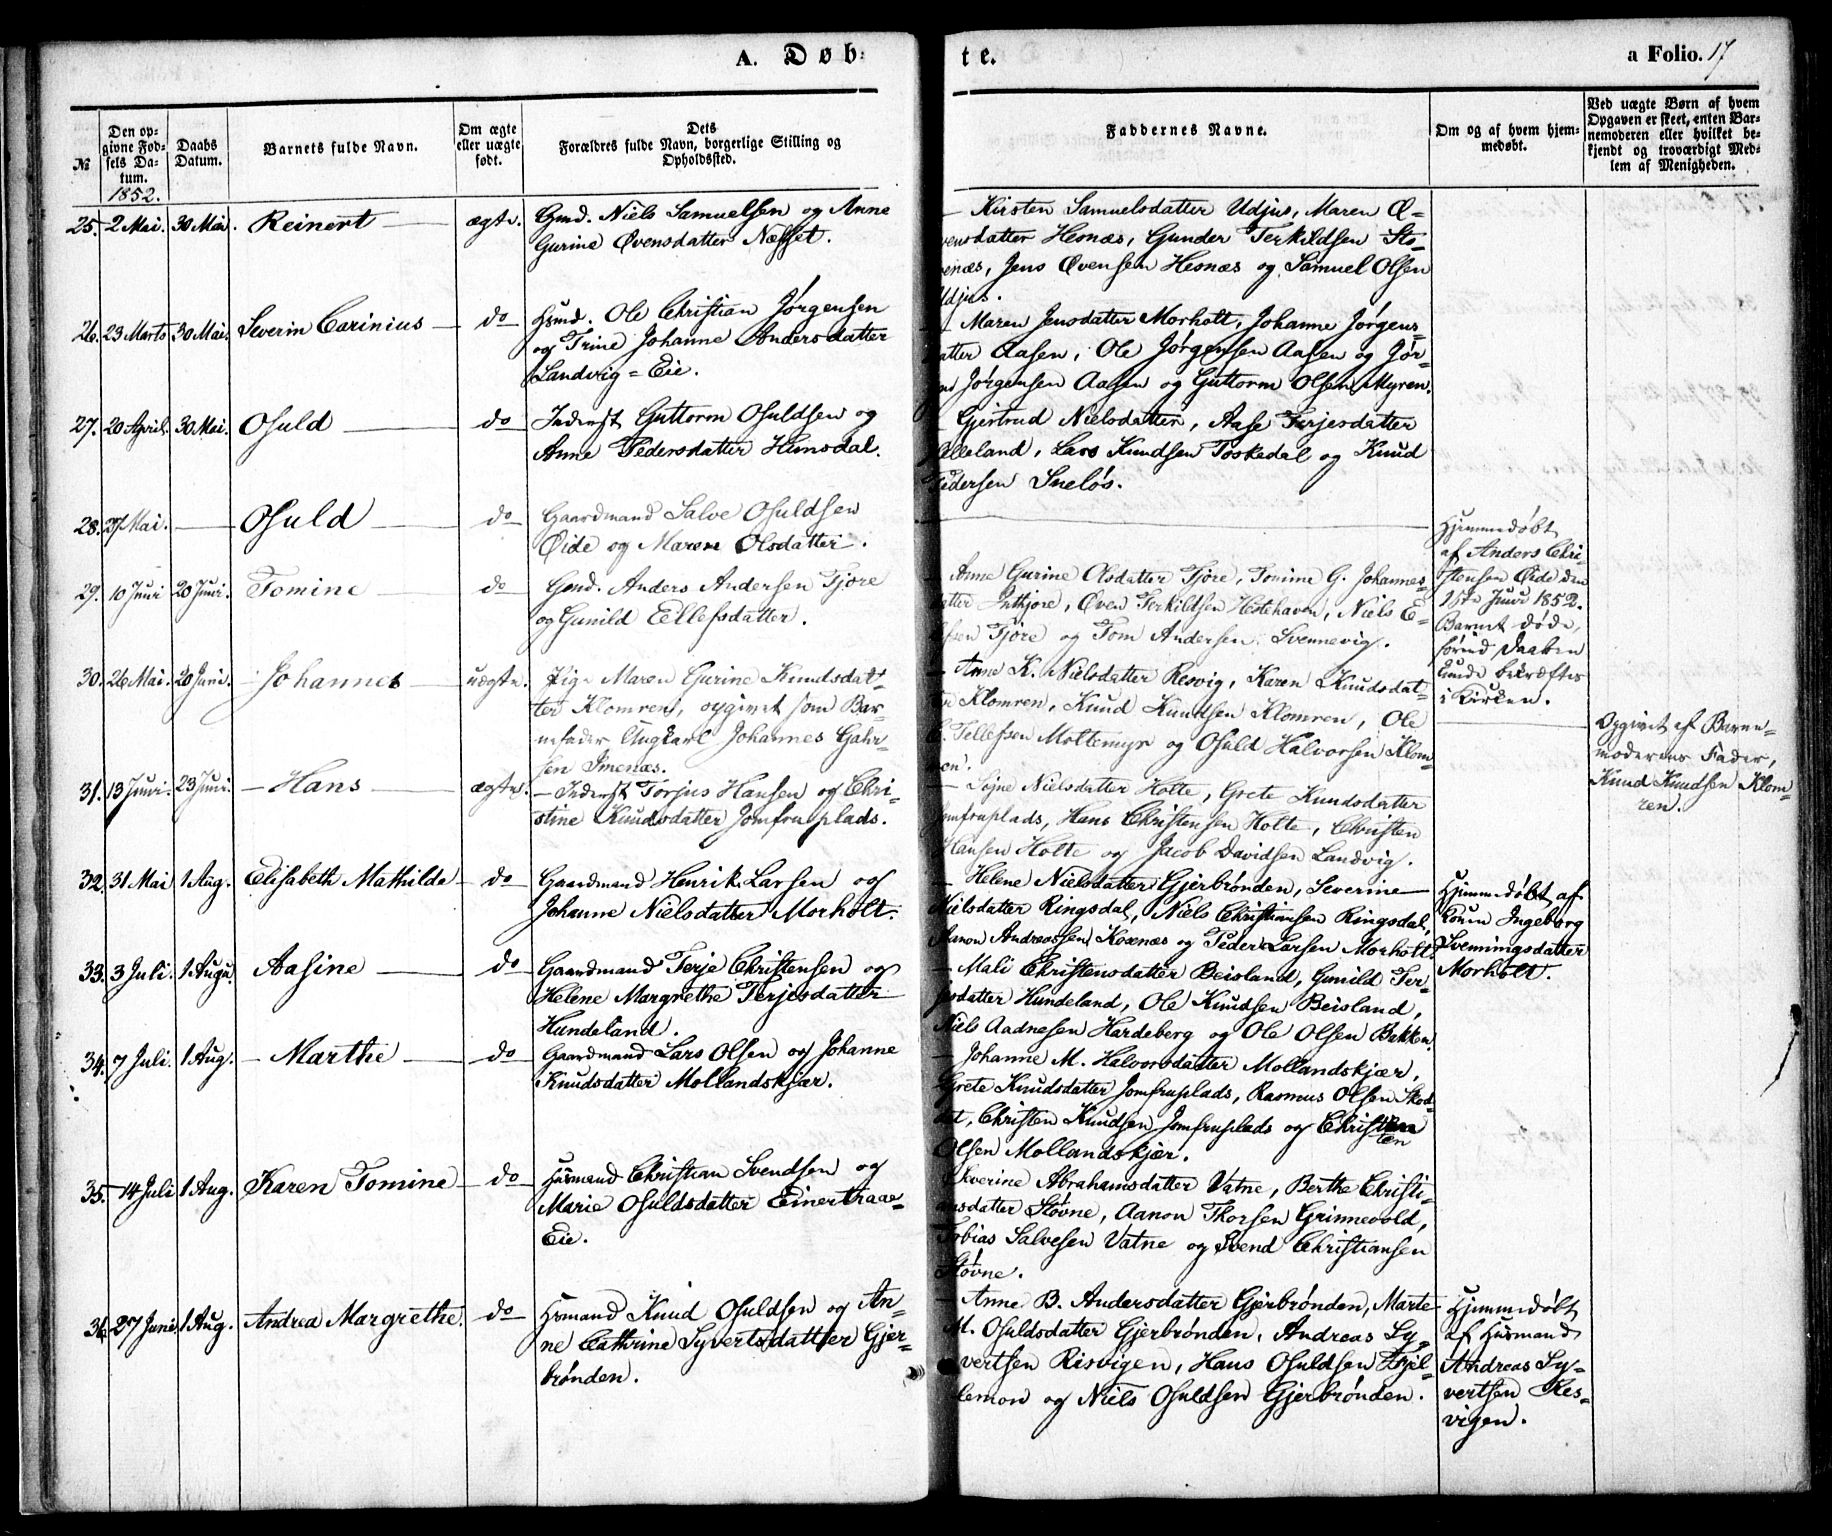 A. Døb-
te.
a Folio. 17
№
Den op-
givne Fød-
sels Da-
tum.
1852.
Daabs
Datum.
Barnets fulde Navn.
Om ægte
eller uægte
født.
Dets
Forældres fulde Navn, borgerlige Stilling og
Opholdssted.
Faddernes Navne.
Om og af hvem hjem-
medøbt.
Ved uægte Børn af hvem
Opgaven er skeet, enten Bar-
nemoderen eller hvilket be-
kjendt og troværdigt Med-
lem af Menigheden.
25. 2 Mai. 30 Mai. Reinert ægte.
Gmd. Niels Samuelsen og Anne
Gurine Øvensdatter Næsset.
Kirsten Samuelsdatter Udjus, Maren Ø-
vensdatter Hesnæs, Gunder Terkildsen Sto-
enæs, Jens Øvensen Hesnæs og Samuel Olsen
Udjus.
26. 23 Marts 30 Mai. Severin Carinius do
Hsmd. Ole Christian Jørgensen
og Trine Johanne Andersdatter
Landvig-Eie.
Maren Jensdatter Morholt, Johanne Jørgens-
atter Aasen, Ole Jørgensen Aasen og Jør-
Jørgensen Aasen og Guttorm Olsen Myren.
27. 20 April. 30 Mai. Osuld do
Inderst Guttorm Osuldsen og
Anne Pedersdatter Humsdal.
Gjertrud Nielsdatter, Aase Terjesdatter
elleland, Lars Knudsen Toskedal og Knud
Pedersen Sneløs.
28. 27 Mai. Osuld do
Gaardmand Salve Osuldsen
Øide og Maren Olsdatter.
Hjemmedøbt
af Anders Chri-
stensen Øide den
1ste Juni 1852.
Barnet døde,
førend Daaben
kunde bekræftes
i Kirken.
29. 10 Juni 20 Juni. Tomine do
Gmd. Anders Andersen Tjore
og Gunild Ellefsdatter.
Anne Gurine Olsdatter Tjore, Tomine G. Johannes-
atter Inttjore, Øven Terkildsen Hestehaven, Niels E-
lefsen Tjore og Tom Andersen Svennevig.
30. 26 Mai. 20 Juni. Johannes uægte.
Pige Maren Gurine Knudsdat-
ter Klomren, opgivet som Bar-
nefader Ungkarl Johannes Gahr-
sen Imenæs.
Anne K. Nielsdatter Resvig, Karen Knudsdat-
ter Klomren, Knud Knudsen Klomren, Ole
Tellefsen Moltemyr og Osuld Halvorsen Klom-
ren.
Opgivet af Barne-
moderens Fader,
Knud Knudsen Klom-
ren.
31. 13 Juni. 23 Juni. Hans ægte.
Inderst Torjus Hansen og Chri-
stine Knudsdatter Jomfruplads.
Signe Nielsdatter Holte, Grete Knudsdatter
Jomfruplads, Hans Christensen Holte, Christen
Hansen Holte og Jacob Davidsen Landvig.
32. 31 Mai 1 Aug. Elisabeth Mathilde do
Gaardmand Henrik Larsen og
Johanne Nielsdatter Morholt.
Helene Nielsdatter Gjerbrønden, Severine
Nielsdatter Ringsdal, Niels Christiansen Ringsdal,
Aanon Andreassen Koxnæs og Peder Larsen Morholt.
Hjemmedøbt af
Konen Ingeborg
Svenningsdatter
Morholt.
33. 3 Juli. 1 Augu. Aasine do
Gaardmand Terje Christensen og
Helene Margrethe Terjesdatter
Hundeland.
Mali Christensdatter Beisland, Gunild Ter-
jesdatter Hundeland, Ole Knudsen Beisland,
Niels Aadnesen Hardeberg og Ole Olsen Bakken.
34. 7 Juli. 1 Aug. Marthe do
Gaardmand Lars Olsen og Johanne
Knudsdatter Mollandskjær.
Johanne M. Halvorsdatter Mollandskjær,
Grete Knudsdatter Jomfruplads, Rasmus Olsen Skod-
det, Christen Knudsen Jomfruplads og Christen
ten
Olsen Mollandskjær.
35. 14 Juli 1 Aug. Karen Tomine do
Husmand Christian Svendsen og
Marie Osuldsdatter Einertraae-
Eie.
Severine Abrahamsdatter Vatne, Berthe Christi-
ansdatter Støvne, Aanon Thorsen Grinnevold,
Tobias Salvesen Vatne og Svend Christiansen
Støvne.
36. 27 Juni 1 Aug. Andrea Margrethe do
Hsmand Knud Osuldsen og An-
ne Cathrine Syvertsdatter Gjer-
brønden.
Anne B. Andersdatter Gjerbrønden, Marte
M. Osuldsdatter Gjerbrønden, Andreas Sy-
vertsen Risvigen, Hans Osuldsen Fjel-
lemon og Niels Osuldsen Gjerbrønden.
Hjemmedøbt
af Husmand
Andreas Sy-
vertsen Res-
vigen.